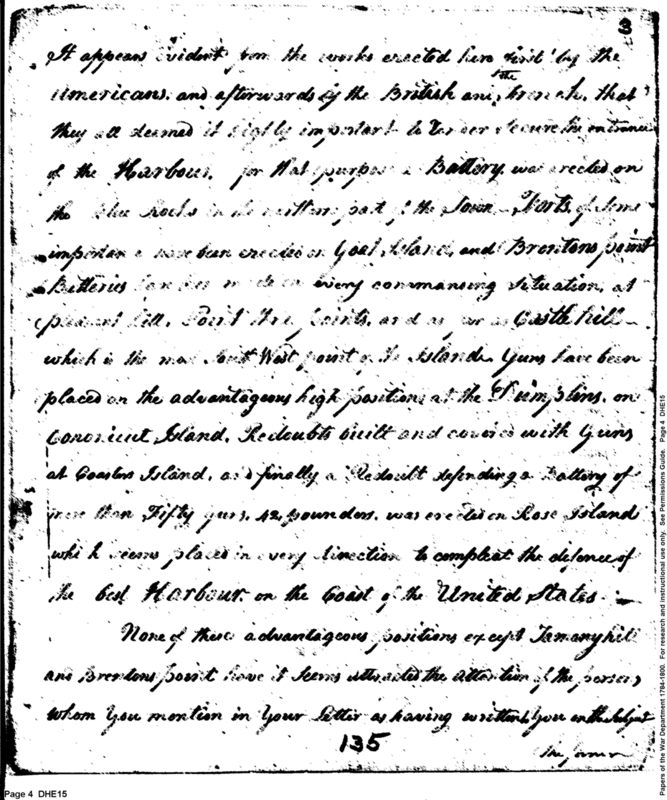 3
It appears evident from the works erected here first by the
the
Americans. and afterwards by the British and french, that
they all deemed it highly important to secure the entrance
of the Harbour. for that purpose a Battery was erected on
the blue Rocks in the northern part of the Town - Forts, of some
importance have been erected on Goat Island, and Brentons point
Batteries have been made in every commanding situation, at
pleasant hill, Point, points, and as far as Castle hill -
which is the most South West point of the Island. Guns have been
placed on the advantageous high positions at the Dumplins, on
Cononicut Island. Redoubts built and covered with Guns
at Coasters Island, and finally a Redoubt defending a Battery of
more than Fifty guns. 42, pounders. was erected on Rose Island
which seems placed in every direction to compleat the defence of
the best Harbour on the Coast of the United States. -
None of these advantageous positions except Tamanyhill
and Brentons point have it seems attracted the attention of the persons
whom You mention in Your Letter as having written to You on the Subject
135
the former
Page 4 DHE15
Papers of the War Department 1784-1800. For research and instructional use only. See Permissions Guide. Page 4 DHE15